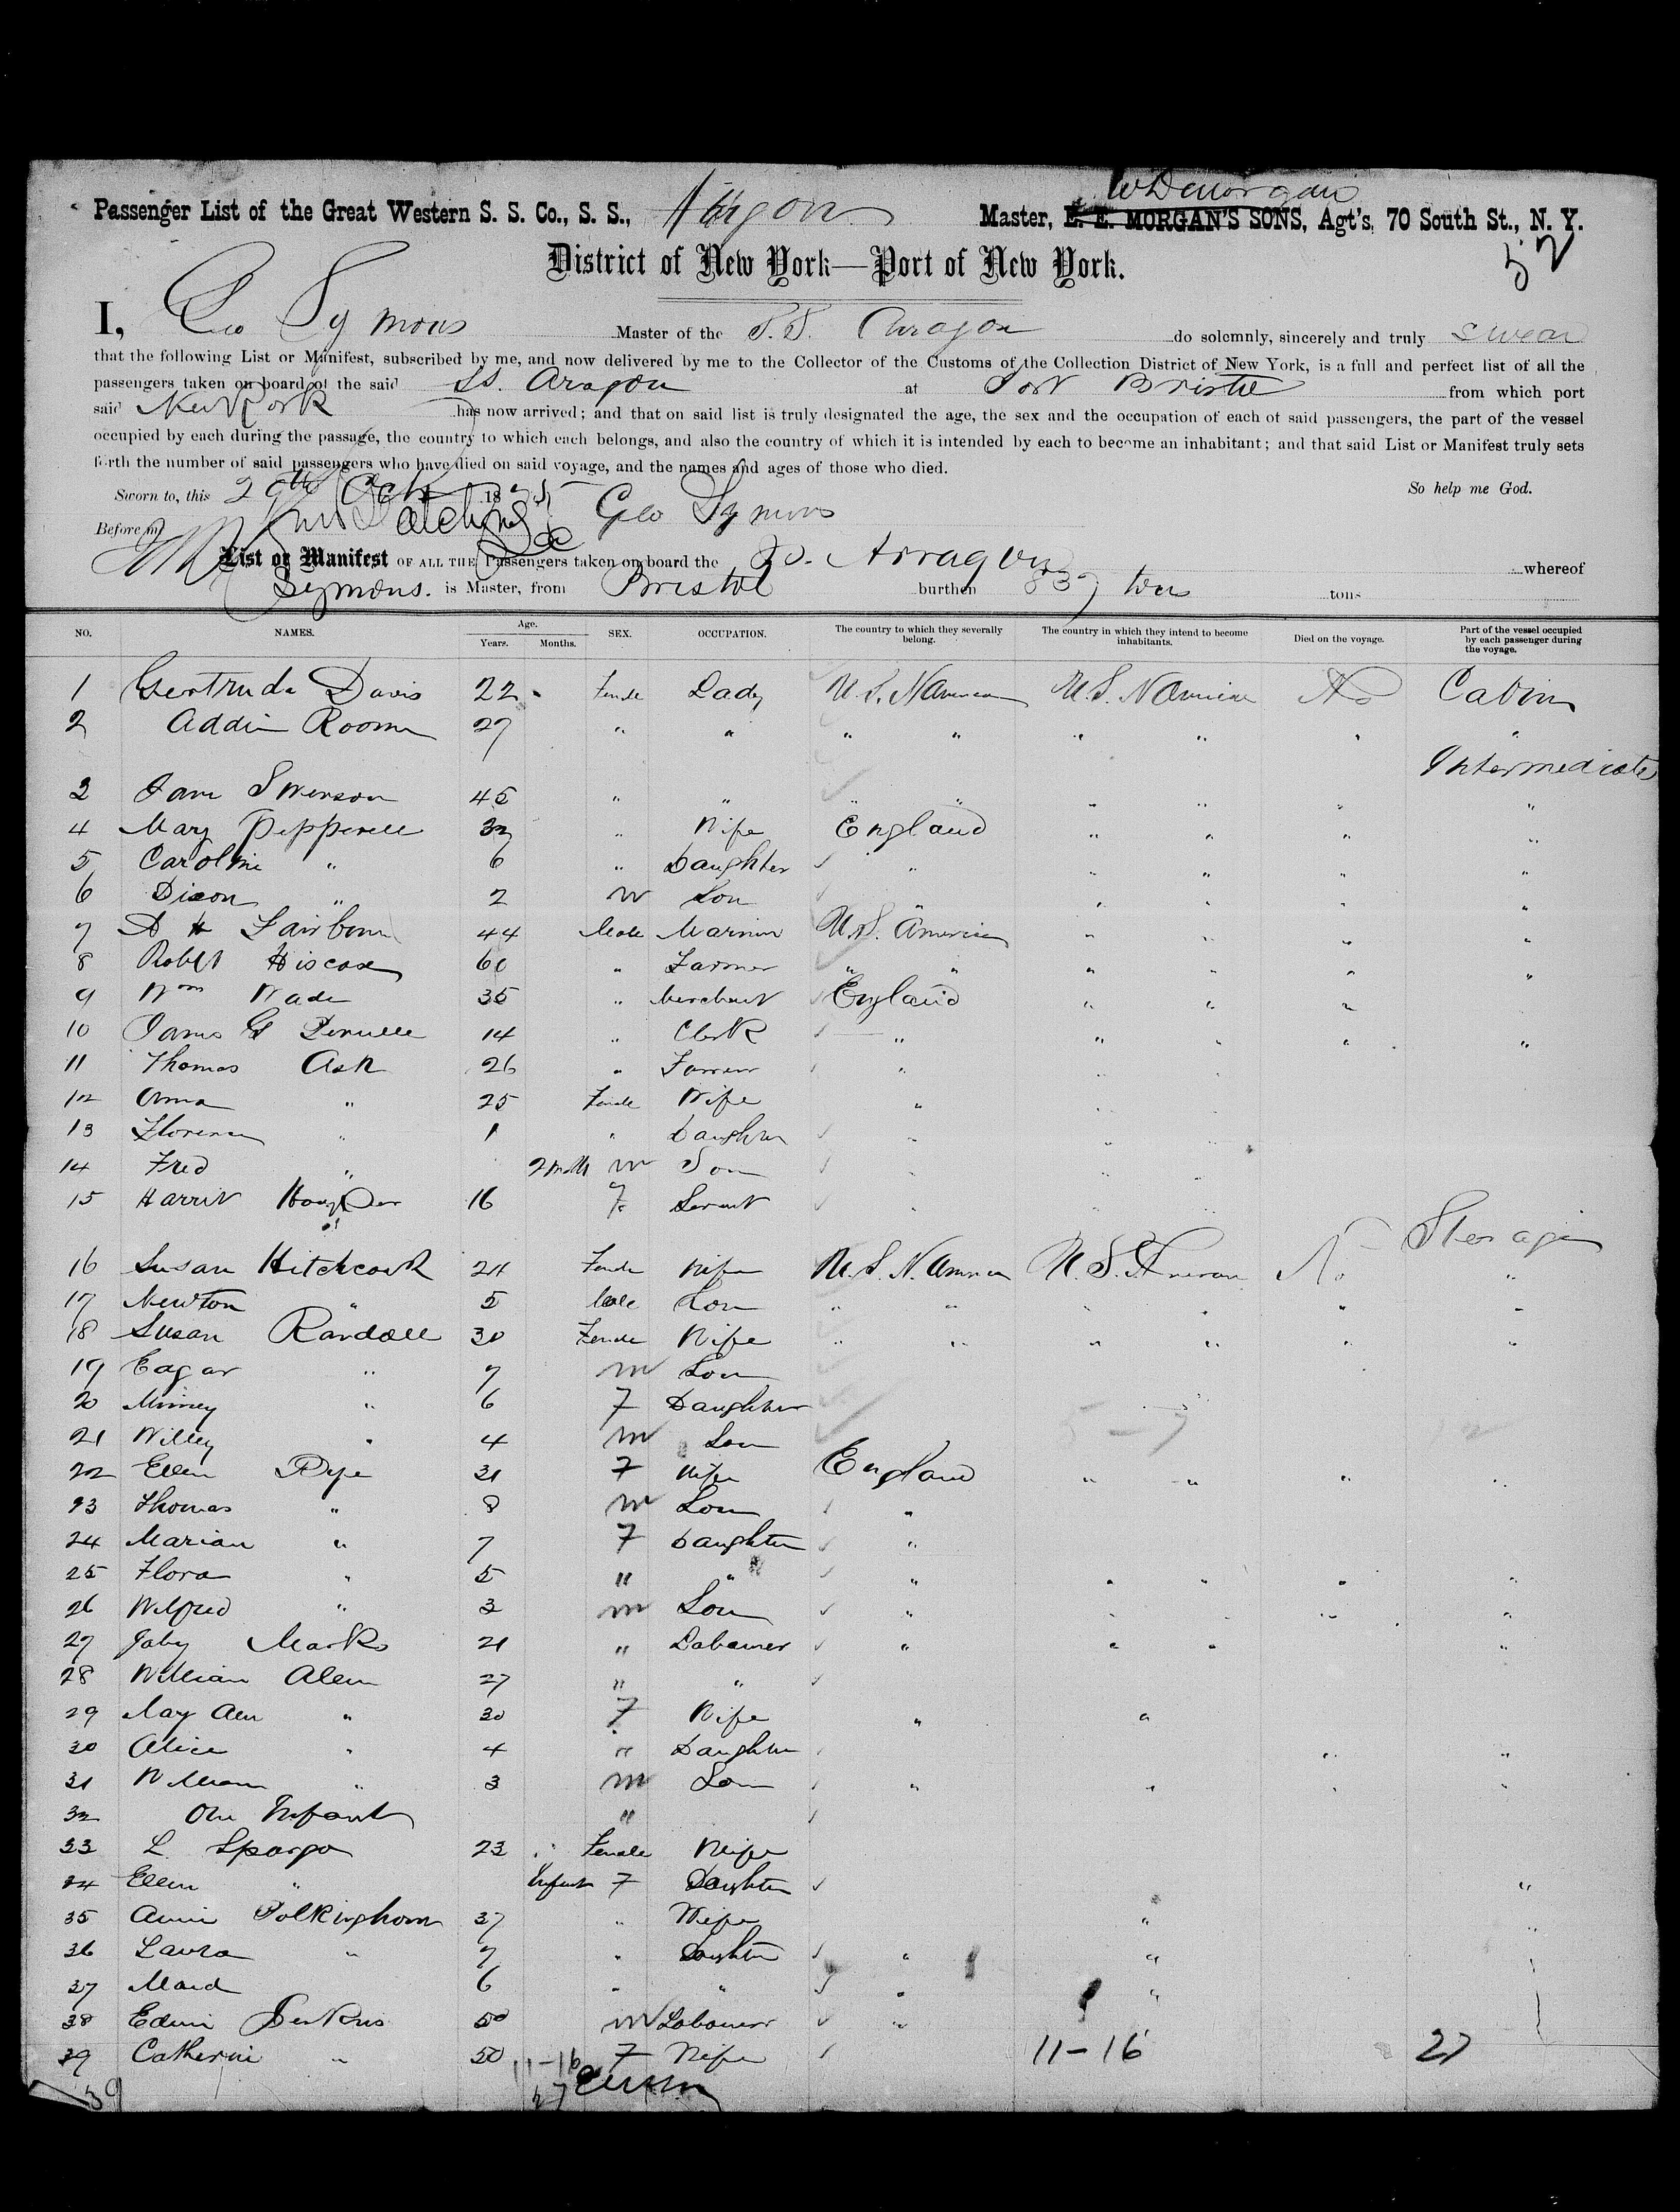 Passenger List of the Great Western S. S. Co., S. S., Aragon Master, E. E. MORGAN'S SONS, Agt's, 70 South St., N. Y.
WD Morgan
52
District of New York—Port of New York.
I, Geo Symons Master of the S.S. Arragon do solemnly, sincerely and truly swear
that the following List or Manifest, subscribed by me, and now delivered by me to the Collector of the Customs of the Collection District of New York, is a full and perfect list of all the
passengers taken on board of the said SS. Aragon at Port Bristol from which port
said New York has now arrived; and that on said list is truly designated the age, the sex and the occupation of each of said passengers, the part of the vessel
occupied by each during the passage, the country to which each belongs, and also the country of which it is intended by each to become an inhabitant; and that said List or Manifest truly sets
forth the number of said passengers who have died on said voyage, and the names and ages of those who died.
So help me God.
Sworn to, this 29th Oct 1875 Geo Symons
Before me
List or Manifest OF ALL THE Passengers taken on board the SS. Arragon whereof
Symons. is Master, from Bristol burthen 837 tons tons
NO. NAMES. Age. Years. Months. SEX. OCCUPATION. The country to which they severally belong. The country in which they intend to become inhabitants. Died on the voyage. Part of the vessel occupied by each passenger during the voyage.
1 Gertrude Davis 22 Female Lady U.S. N America U.S. N America No Cabin
2 Addie Room 27 " " " " " " " "
Intermediate
3 Jane Swenson 45 " " " " " " " "
4 Mary Pepperell 32 " Wife England " " " "
5 Caroline " 6 " Daughter " " " " "
6 Dixon " 2 m Son " " " " "
7 A H Fairbourn 44 Male Mariner U.S. America " " " "
8 Robert Hiscox 60 " Farmer " " " " " "
9 Wm Wade 35 " Merchant England " " "
10 James G 14 " Clerk " " " " "
11 Thomas Ash 26 " Farmer " " "
12 Anna " 25 Female Wife " " "
13 Florence " 1 " Daughter " " "
14 Fred " 2 mths m Son " " "
15 Harriet 16 F. Servant " " "
Steerage
16 Susan Hitchcock 24 Female Wife U.S. N. America U.S. America No "
17 Newton " 5 Male Son " " " " " "
18 Susan Randall 30 Female Wife " " " " " "
19 Edgar " 7 m Son
20 Minney " 6 F Daughter
21 Willey " 4 m Son
22 Ellen Pope 31 F Wife England " " " "
23 Thomas " 8 m Son "
24 Marian " 7 F Daughter "
25 Flora " 5 " " " " " " "
26 Wilfred " 3 m Son " " " " "
27 Marks 21 " Labourer " " " "
28 William Allen 27 " "
29 May Ann " 30 F Wife " "
30 Alice " 4 " Daughter " "
31 William " 3 m Son " " " "
32 One Infant "
33 L Spargo 23 Female Wife
34 Ellen " Infant F Daughter "
35 Annie Polkinghorn 37 " Wife " "
36 Laura " 7 " Daughter " "
37 Maud 6 " " " "
38 Edwin Jenkins 50 m Labourer "
39 Catherine " 50 F Wife
11-16 27
11-16
27
39